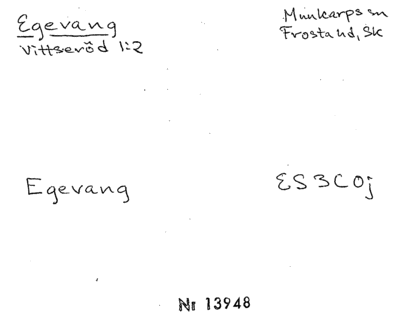 Egevang
Vittseröd 1:2
Munkarps sn
Frosta hd, Sk
Egevang
ES 3C 0j
Nr 13948